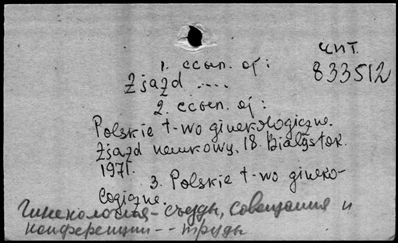 чит.
833512
1. ссыл. of:
Zjazd ....
2. ссыл. of:
Polskie t-wo ginekologiczne.
Zjazd naukowy. 18. Białystok.
1971.
3. Polskie t-wo gineko-
logiczne.
Гинекология - съезды, совещания и
конференции -- труды